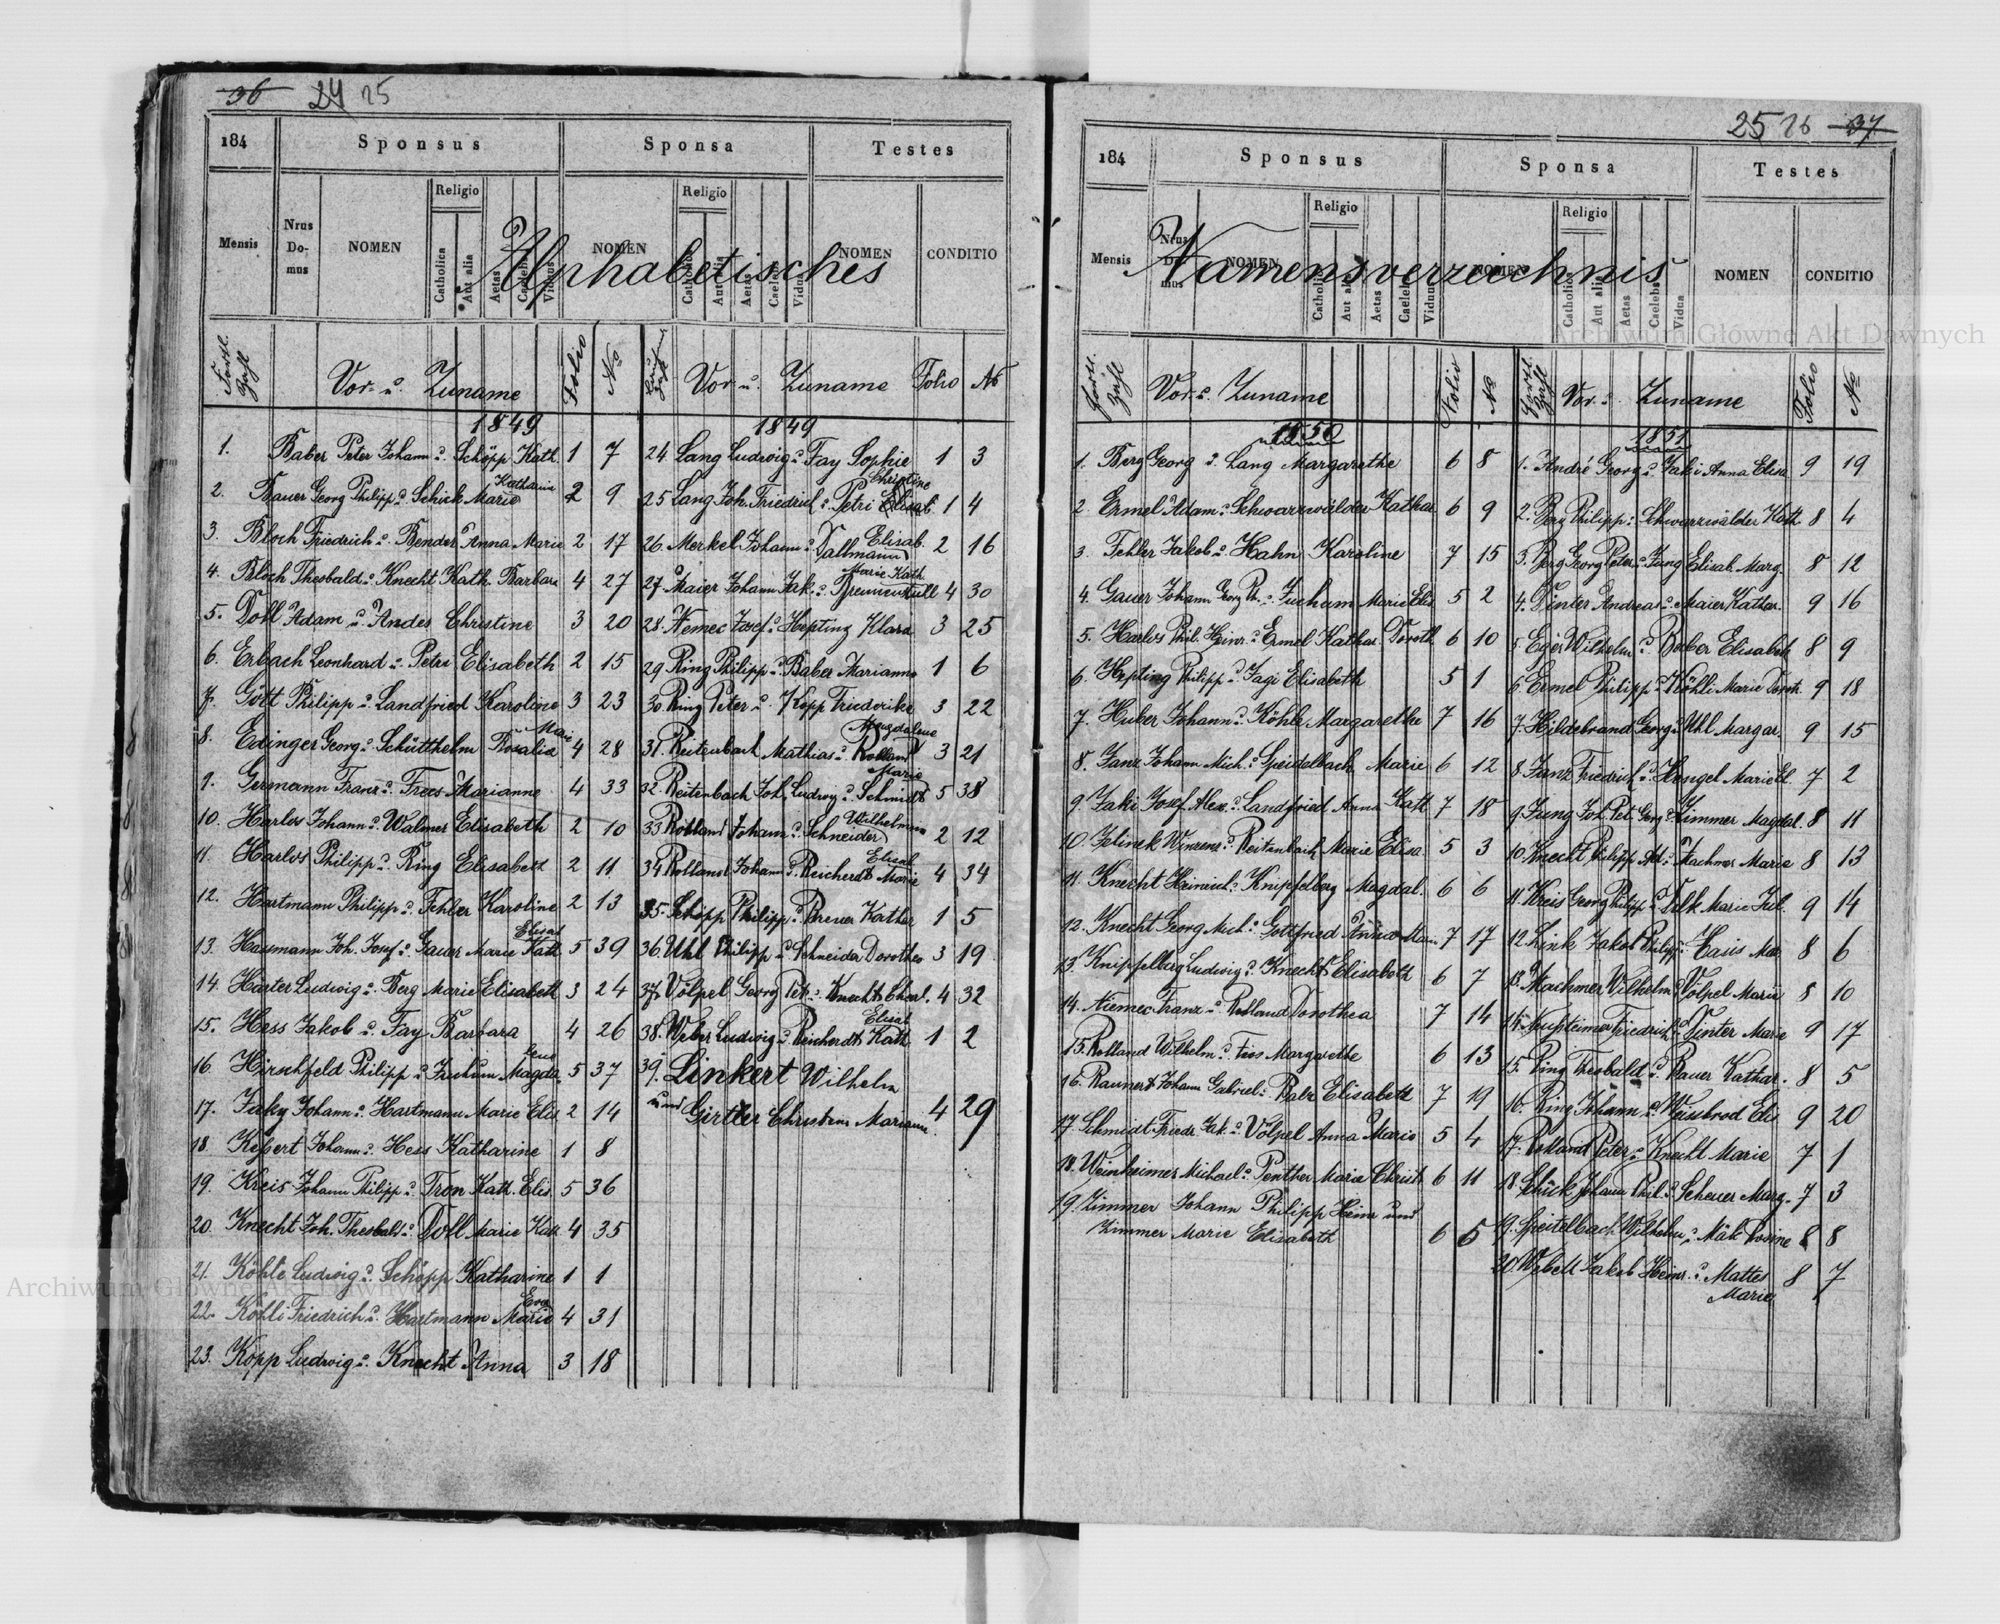 36 24 25
184 Sponsus Sponsa Testes
Mensis Nrus Domus NOMEN Religio Catholica Aut alia Aetas Caelebs Viduus NOMEN Religio Catholica Aut alia Aetas Caelebs Vidua NOMEN CONDITIO
Alphabetisches
Fortl. Zahl Vor- u. Zuname Folio No Laufende Zahl Vor- u. Zuname Folio No
1849
1. Baber Peter Johann u. Schöpp Kath. 1 7
2. Bauer Georg Philipp u. Schick Marie Katharina 2 9
3. Bloch Friedrich u. Bender Anna Marie 2 17
4. Bloch Theobald u. Knecht Kath. Barbara 4 27
5. Doll Adam u. Andes Christine 3 20
6. Erbach Leonhard u. Petri Elisabeth 2 15
7. Gött Philipp u. Landfried Karoline 3 23
8. Edinger Georg u. Schütthelm Rosalia Marie 4 28
9. Germann Franz u. Frees Marianne 4 33
10. Harlos Johann u. Walmer Elisabeth 2 10
11. Harlos Philipp u. Ring Elisabeth 2 11
12. Hartmann Philipp u. Fehler Karoline 2 13
13. Hausmann Joh. Josef u. Gauer Marie Kath Elisab 5 39
14. Harter Ludwig u. Berg Marie Elisabeth 3 24
15. Hess Jakob u. Fay Barbara 4 26
16. Hirschfeld Philipp u. Juchum Magdalena 5 37
17. Jaky Johann u. Hartmann Marie Elis. 2 14
18. Kepert Johann u. Hess Katharine 1 8
19. Kreis Johann Philipp u. Tron Kath. Elis. 5 36
20. Knecht Joh. Theobald u. Doll Marie Kath. 4 35
21. Köhle Ludwig u. Schöpp Katharine 1 1
22. Köhli Friedrich u. Hartmann Marie Eva 4 31
23. Kopp Ludwig u. Knecht Anna 3 18
1849
24. Lang Ludwig u. Fay Sophie 1 3
25 Lang Joh. Friedrich u. Petri Elisab. Christine 1 4
26. Merkel Johann u. Dallmann Elisab. 2 16
27. Maier Johann Jak. u. Brennenstull Marie Kath. 4 30
28. Nemec Josef u. Hepting Klara 3 25
29 Ring Philipp u. Baber Marianna 1 6
30 Ring Peter u. Kopp Friederike 3 22
31. Reitenbach Mathias u. Rolland Magdalene 3 21
32. Reitenbach Joh. Ludwig u. Schmidt Marie 5 38
33 Rolland Johann u. Schneider Wilhelmine 2 12
34 Rolland Johann u. Reicherdt Marie Elisab 4 34
35. Schöpp Philipp u. Breuer Kathar 1 5
36. Uhl Philipp u. Schneider Dorothea 3 19
37. Völpel Georg Pet. u. Knecht Charl. 4 32
38. Weber Ludwig u. Reicherdt Kath. Elisab 1 2
39. Linkert Wilhelm
und Girtler Christina Marianne. 4 29
25 26 37
184 Sponsus Sponsa Testes
Mensis Nrus Domus NOMEN Religio Catholica Aut alia Aetas Caelebs Viduus NOMEN Religio Catholica Aut alia Aetas Caelebs Vidua NOMEN CONDITIO
Namensverzeichnis
Fortl. Zahl Vor- u. Zuname Folio No Fortl. Zahl Vor- u. Zuname Folio No
1850
1. Berg Georg u. Lang Margarethe 6 8
2. Ermel Adam u. Schwarzwälder Kathar. 6 9
3. Fehler Jakob u. Hahn Karoline 7 15
4. Gauer Johann Georg Ph. u. Juchum Marie Elis 5 2
5. Harlos Phil. Heinr. u. Ermel Kathar. Doroth. 6 10
6. Hepting Philipp u. Jagi Elisabeth 5 1
7. Huber Johann u. Köhle Margarethe 7 16
8. Janz Johann Mich. u. Speidelbach Marie 6 12
9. Jaki Josef Alex. u. Landfried Anna Kath. 7 18
10. Jelinek Winzenz u. Reitenbach Marie Elisa 5 3
11. Knecht Heinrich u. Knipfelberg Magdal. 6 6
12. Knecht Georg Mich. u. Gottfried Anna Marie 7 17
13. Knipfelberg Ludwig u. Knecht Elisabeth 6 7
14. Niemec Franz u. Rolland Dorothea 7 14
15. Rolland Wilhelm u. Margarethe 6 13
16. Raunert Johann Gabriel u. Balz Elisabeth 7 19
17. Schmidt Friedr. Jak. u. Völpel Anna Marie 5 4
18. Weinheimer Michael u. Penther Marie Christ. 6 11
19. Zimmer Johann Philipp Heinr und
Zimmer Marie Elisabeth 6 5
1851
1. André Georg u. Jaki Anna Elisa 9 19
2. Berg Philipp u. Schwarzwälder Kath 8 4
3. Berg Georg Peter u. Jung Elisab. Marg. 8 12
4. Dinter Andreas u. Maier Kathar. 9 16
5. Eger Wilhelm u. Baber Elisabeth 8 9
6. Ermel Philipp u. Köhli Marie Doroth. 9 18
7. Hildebrand Georg u. Uhl Margar. 9 15
8. Janz Friedrich u. Hengel Marie El. 7 2
9. Jung Joh. Pet. Georg u. Zimmer Magdal. 8 11
10 Knecht Philipp Ad. u. Machmer Marie 8 13
11. Kreis Georg Philipp u. Delk Marie Jul. 9 14
12. Link Jakob Philipp u. Hasis 8 6
13. Machmer Wilhelm u. Völpel Marie 8 10
14. Friedrich u. Dinter Marie 9 17
15. Ring Theobald u. Bauer Kathar. 8 5
16. Ring Johann u. Weissbrod Elis 9 20
17. Rolland Peter u. Knecht Marie 7 1
18. Schick Johann Phil. u. Scheuer Marg. 7 3
19. Speitelbach Wilhelm u. Mäk Rosine 8 8
20. Webelt Jakob Heinr. u. Mattes Marie 8 7
Archiwum Główne Akt Dawnych
Archiwum Główne Akt Dawnych